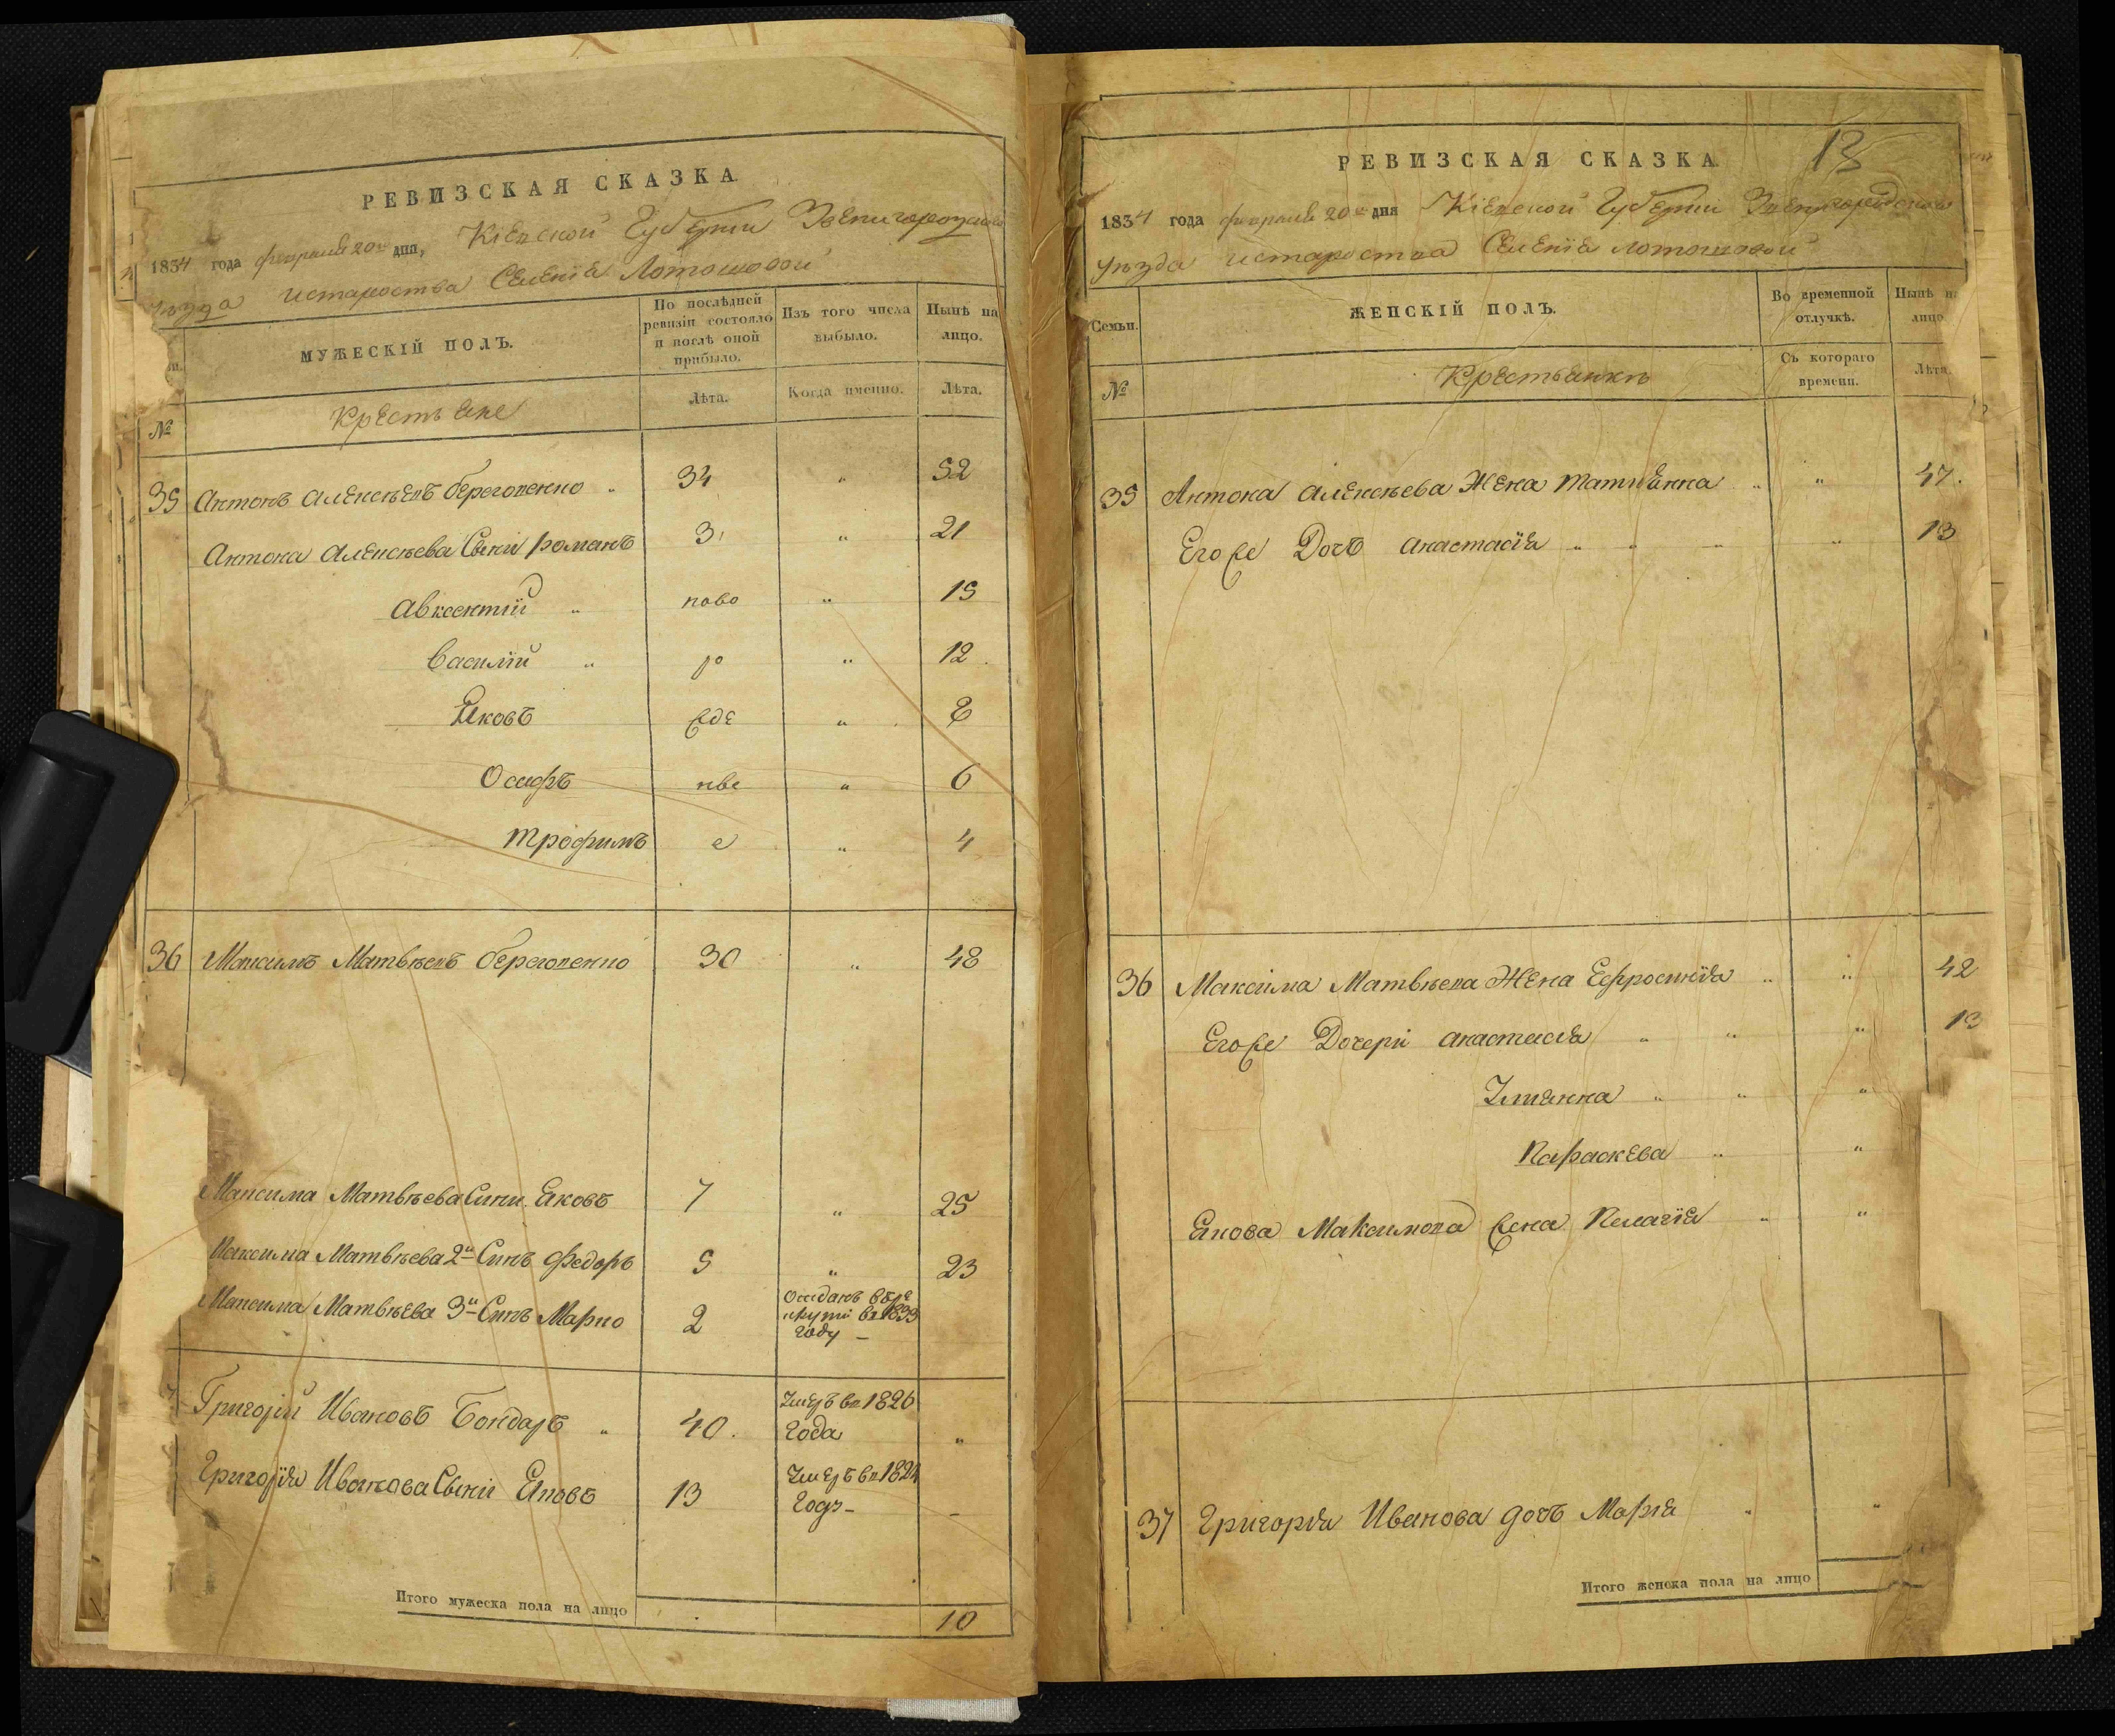 РЕВИЗСКАЯ СКАЗКА
1834 года февраля 20го дня, Кіевской Губерніи Звенигородскаго
уѣзда истароства Селенія Лотошовой
МУЖЕСКІЙ ПОЛЪ.
По послѣдней ревизіи состояло и послѣ оной прибыло.
Изъ того числа выбыло.
Нынѣ на лицо.
№
Крестьяне
Лѣта.
Когда именно.
Лѣта.
35 Антонъ Алексѣевъ береговенко „ 34 „ 52
Антона Алексѣева Сыни романъ 3 „ 21
Авксентій „ ново „ 15
василій „ ро „ 12
Яковъ жде „ 8
Осифъ нье „ 6
трофимъ е „ 4
36 Максимъ Матвѣевъ береговенко 30 „ 48
Максима Матвѣева Сини Яковъ 7 „ 25
Максима Матвѣева 2й Синъ Федоръ 5 „ 23
Максима Матвѣева 3й Синъ Марко 2 Отданъ в ре
крути въ 1833
году —
Григорій Ивановъ Бондаръ „ 40. Умеръ въ 1826
Года „
Григорія Иванова Сыни Яковъ 13 Умеръ въ 1824
Годъ – –
Итого мужеска пола на лицо
10
13
РЕВИЗСКАЯ СКАЗКА
1834 года февраля 20го дня Кіевской Губерніи Звенигородскаго
уѣзда истароства Селенія Лотошовой
Семьи.
ЖЕНСКІЙ ПОЛЪ.
Во временной отлучкѣ.
Нынѣ на лицо
№
Крестьянкѣ
Съ котораго времени.
Лѣта
35 Антона Алексѣева Жена татиянна „ „ 47.
Его же Дочъ анастасія „ „ „ „ 13
36 Максима Матвѣева Жена Ефросинія „ „ 42
Его же Дочери анастасія „ „ „ 13
Улиянна „ „ „
Параскева „ „
Якова Максимова жена Пелагія „ „
37 Григорія Иванова дочъ Марія „ „
Итого женска пола на лицо